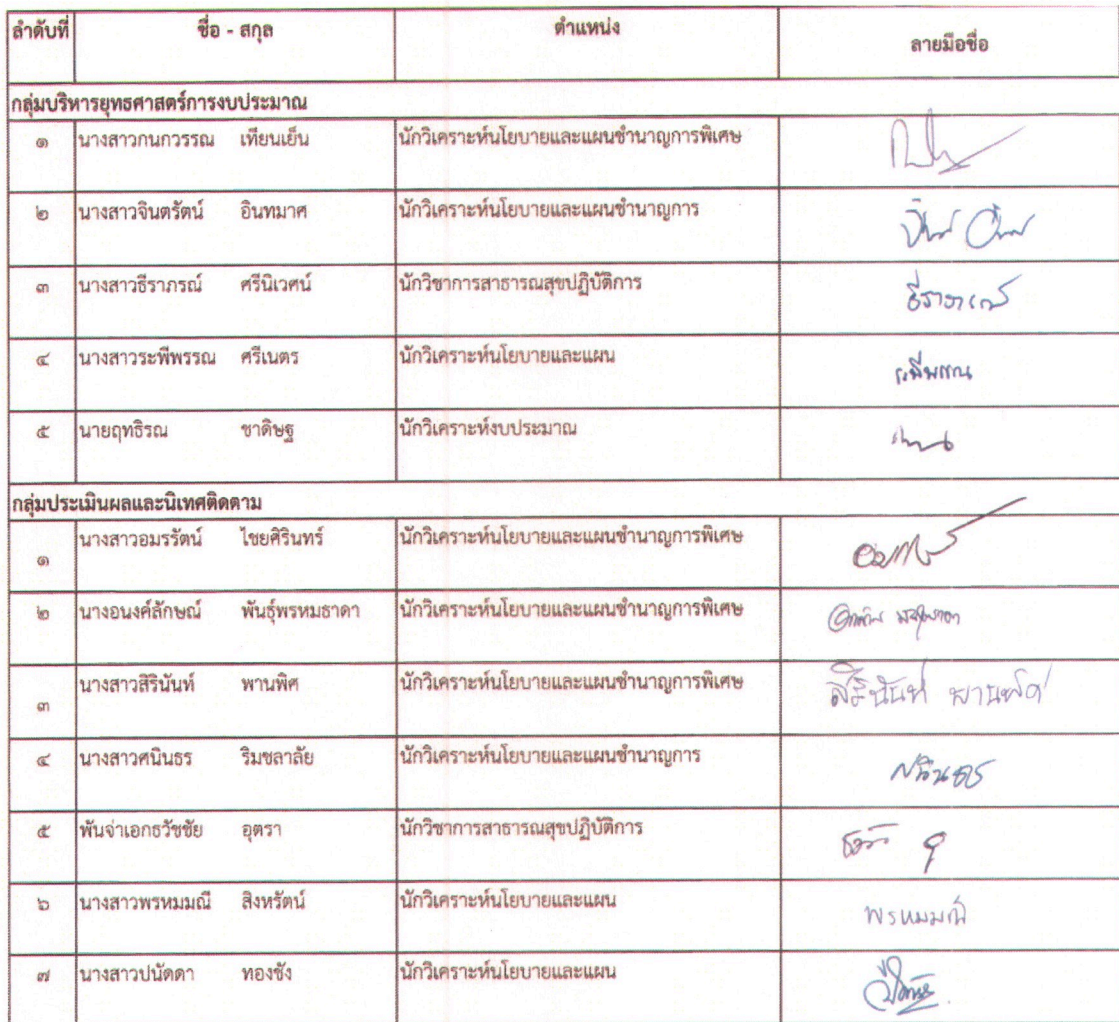 ลำดับที่ ชื่อ - สกุล ตำแหน่ง ลายมือชื่อ
กลุ่มบริหารยุทธศาสตร์การงบประมาณ
๑ นางสาวกนกวรรณ เทียนเย็น นักวิเคราะห์นโยบายและแผนชำนาญการพิเศษ
๒ นางสาวจินตรัตน์ อินทมาศ นักวิเคราะห์นโยบายและแผนชำนาญการ
๓ นางสาวธีราภรณ์ ศรีนิเวศน์ นักวิชาการสาธารณสุขปฏิบัติการ ธีราภรณ์
๔ นางสาวระพีพรรณ ศรีเนตร นักวิเคราะห์นโยบายและแผน ระพีพรรณ
๕ นายฤทธิรณ ชาดิษฐ นักวิเคราะห์งบประมาณ
กลุ่มประเมินผลและนิเทศติดตาม
๑ นางสาวอมรรัตน์ ไชยศิรินทร์ นักวิเคราะห์นโยบายและแผนชำนาญการพิเศษ
๒ นางอนงค์ลักษณ์ พันธุ์พรหมธาดา นักวิเคราะห์นโยบายและแผนชำนาญการพิเศษ
๓ นางสาวสิรินันท์ พานพิศ นักวิเคราะห์นโยบายและแผนชำนาญการพิเศษ สิรินันท์ พานพิศ
๔ นางสาวศนินธร ริมชลาลัย นักวิเคราะห์นโยบายและแผนชำนาญการ ศนินธร
๕ พันจ่าเอกธวัชชัย อุตรา นักวิชาการสาธารณสุขปฏิบัติการ
๖ นางสาวพรหมมณี สิงหรัตน์ นักวิเคราะห์นโยบายและแผน พรหมมณี
๗ นางสาวปนัดดา ทองชัง นักวิเคราะห์นโยบายและแผน